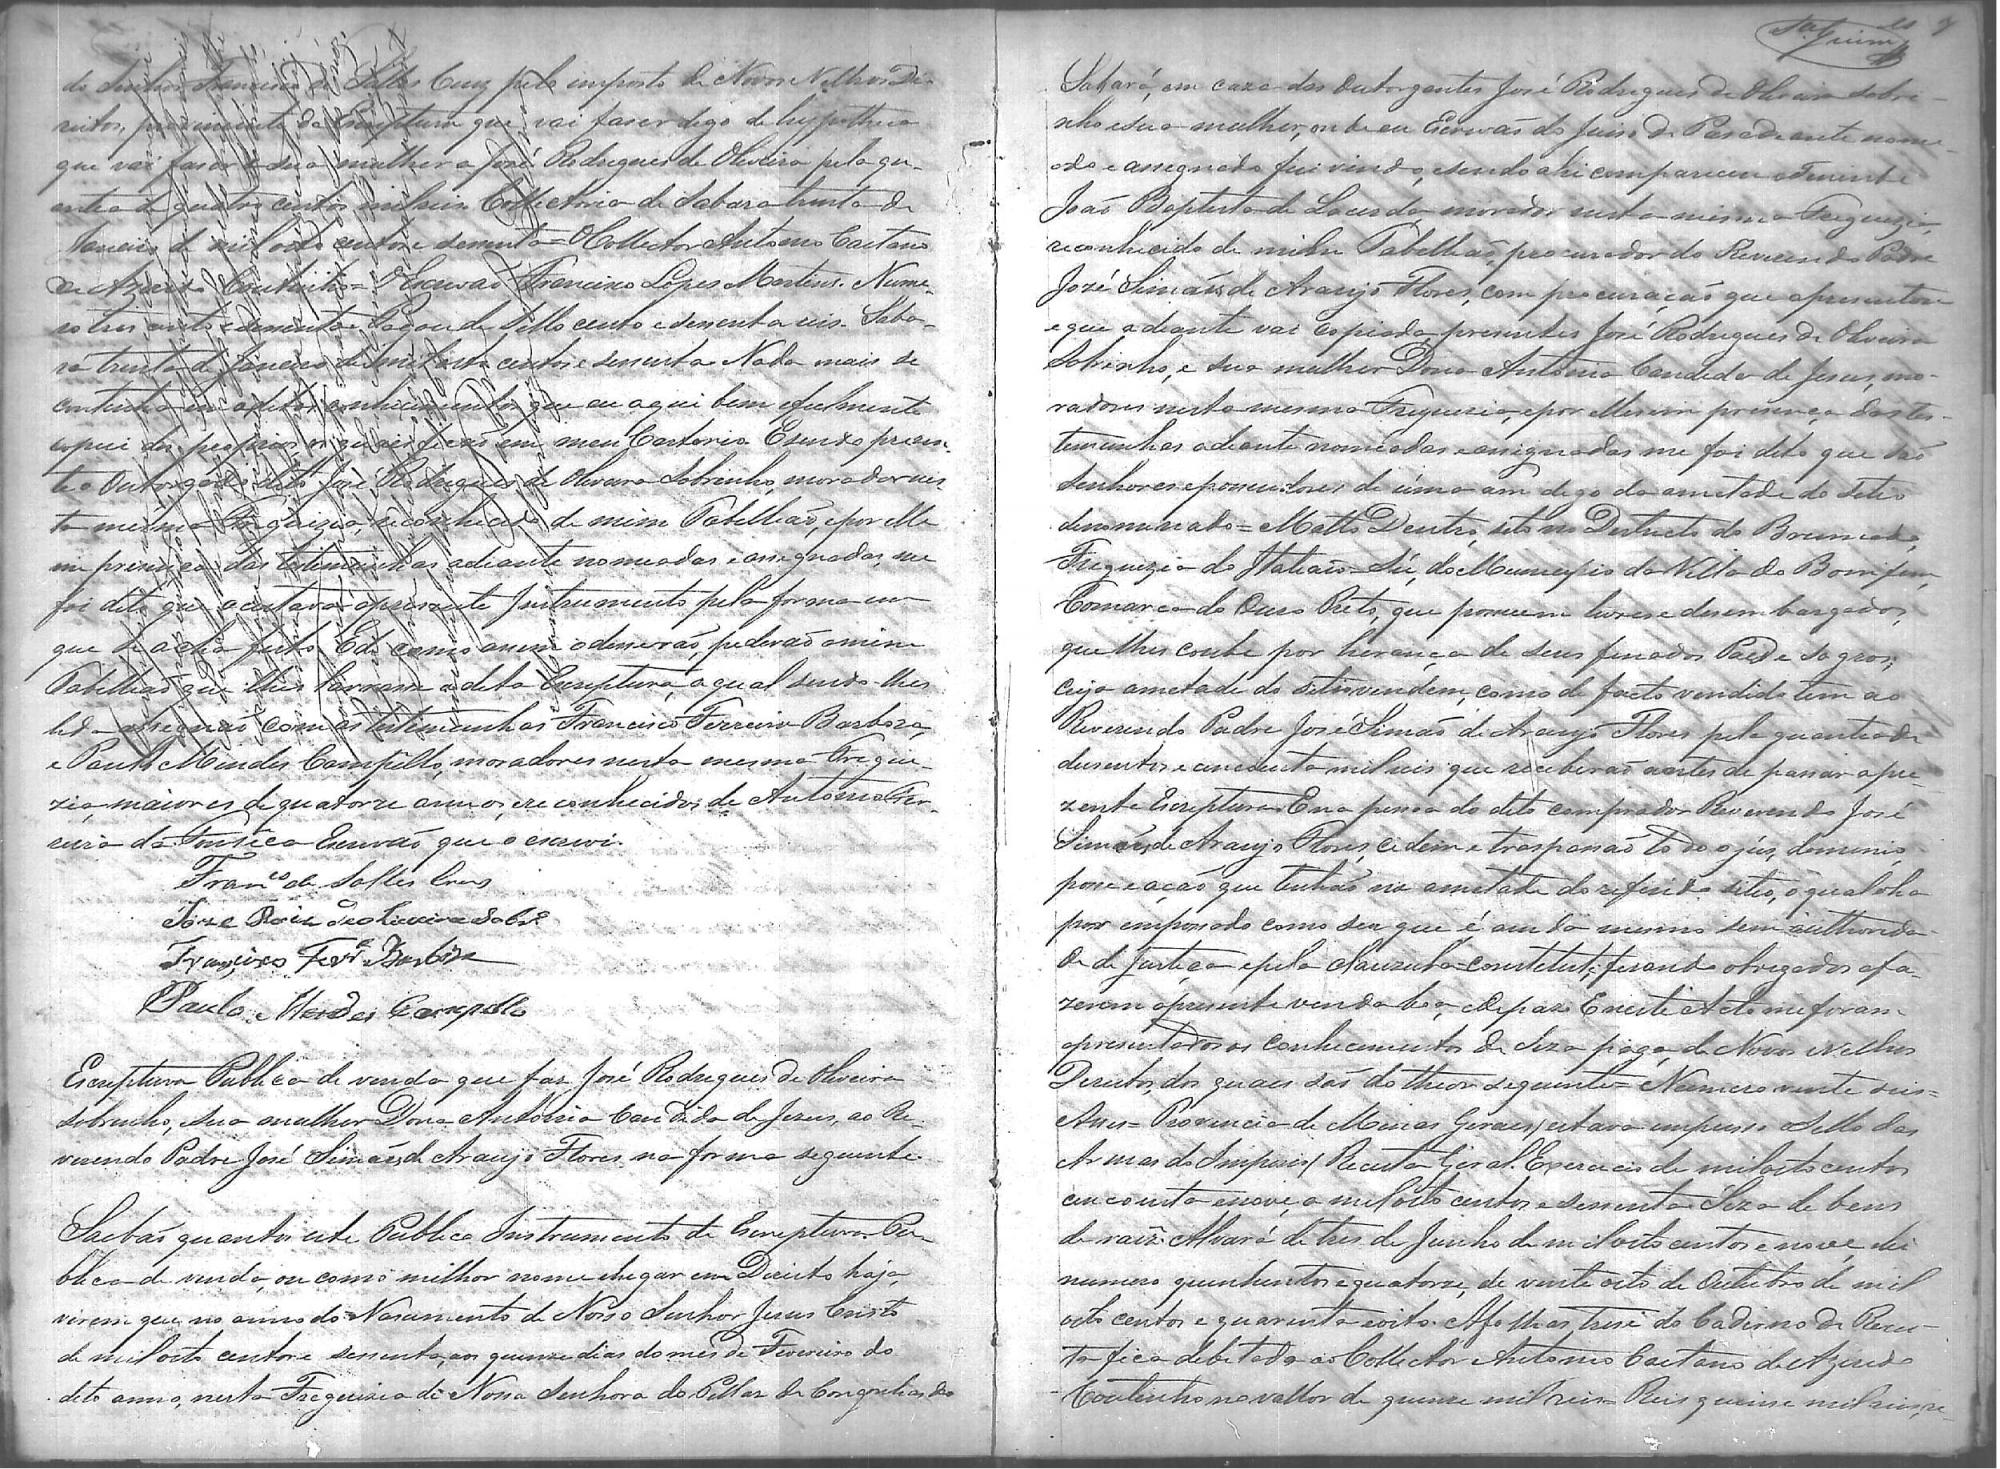 do Senhor Francisco de Salles Cruz pelo imposto de Novos e Velhos Di-
reitos, proveniente da Escriptura que vai faser digo de hypotheca
que vai faser e sua mulher a José Rodrigues de Oliveira pela qu-
antia de quatro centos mil reis. Collectoria de Sabará trinta de
Janeiro de mil oito centos e sessenta = O Collector Antonio Caetano
de Azeredo Coutinho = O Escrivão Francisco Lopes Martins. Nume-
ro tres cento e sessenta. Pagou de sello cento e sessenta reis. Saba-
rá trinta de Janeiro de mil oito centos e sessenta. Nada mais se
continha em os ditos conhecimentos que eu aqui bem e fielmente
copiei dos proprios, os quais ficão em meu Cartorio. E sendo presen-
te o Outorgado dito José Rodrigues de Oliveira Sobrinho, morador nes-
ta mesma Freguizia, reconhecido de mim Tabellião, e por elle
em presença das testemunhas adiante nomeadas e assignadas, me
foi dito que aceitava o presente Instrumento pela forma em
que se acha feito. E de como assim o disserão, pederão a mim
Tabellião que lhes lavrasse a dita Escriptura, a qual sendo-lhes
lida assignão com as testemunhas Francisco Ferreira Barboza,
e Paulo Mendes Campello, moradores nesta mesma Fregue-
zia, maiores de quatorze annos, reconhecidos de Antonio Fer-
reira da Fonseca Escrivão que o escrevi.
Fran.co de Salles Cruz
Jose Roiz de oliveira Sobr.o
Francisco Ferr.a Barboza
Paulo Mendes Campello
Escriptura Publica de venda que faz José Rodrigues de Oliveira
sobrinho, e sua mulher Dona Antonia Candida de Jesus, ao Re-
verendo Padre José Simões de Araujo Flores na forma seguinte.
Saibão quantos este Publico Instrumento de Escriptura Pu-
blica de venda, ou como milhor nome e lugar em Direito haja,
virem que no anno do Nascimento de Nosso Senhor Jesus Cristo
de mil oito centos e sessenta, aos quinze dias do mes de Fevereiro do
dito anno, nesta Freguizia de Nossa Senhora do Pillar de Congonhas do
Sabará, em caza dos Outorgantes José Rodrigues de Oliveira Sobri-
nho e sua mulher, onde eu Escrivão do Juiso de Paz adiante nome-
ado e assignado fui vindo, e sendo ahi compareceu o Tenente
João Baptista de Lacerda morador nesta mesma Freguezia,
reconhecido de mim Tabellião, procurador do Reverendo Padre
José Simões de Araujo Flores, com procuração que apresentou
e que adiante vai copiada, presentes José Rodrigues de Oliveira
Sobrinho, e sua mulher Dona Antonia Candida de Jesus, mo-
radores nesta mesma Freguezia, e por elles em presença das tes-
temunhas adiante nomeadas e assignadas me foi dito que são
senhores e possuidores de uma am digo da ametade do sitio
denominado = Matto Dentro, sito no Destricto do Brumado,
Freguezia do Itatiaio-Sú, do Municipio da Villa do Bomfim,
Comarca do Ouro Preto, que possuem livres e desembargados,
que lhes coube por herança de seus finados Paes e sogros,
cuja ametade do sitio vendem, como de facto vendido tem ao
Reverendo Padre José Simão de Araujo Flores pela quantia de
dusentos e cincoenta mil reis que receberão antes de passar a pre-
zente Escriptura. E na pessoa do dito comprador Reverendo José
Simões de Araujo Flores, cedem e traspassão todo o jús, dominio,
posse e ação que tenhão na ametade do referido sitio, o qual o ha
por empossado como seu que é ainda mesmo sem authorida-
de de Justiça e pela Clausula-constituti, ficando obrigados a fa-
zerem a presente venda boa, e de paz. E neste Acto me foram
apresentados os conhecimentos de Siza paga, de Novos e velhos
Direitos, dos quaes são do theor seguinte = Numero vinte seis =
Provincia de Minas Geraes, estava impresso o Sello das
Armas do Imperio / Receita Geral. Exercicio de mil oito centos
cincoenta e nove, a mil oito centos e sessenta. Siza de bens
de raiz. Alvará de tres de Junho de mil oito centos e nove, lei
numero quinhentos e quatorze, de vinte oito de Outubro de mil
oito centos e quarenta e oito. A folhas treze do Caderno da Recei-
ta fica debitado ao Collector Antonio Caetano de Azeredo
Coutinho no vallor de quinze mil reis = Reis quinze mil reis, re-